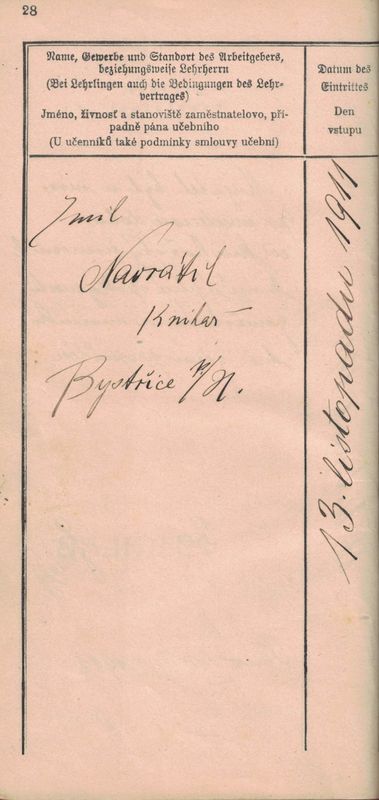 28
Name, Gewerbe und Standort des Arbeitgebers,
beziehungsweise Lehrherrn
(Bei Lehrlingen auch die Bedingungen des Lehr-
vertrages)
Jméno, živnosť a stanoviště zaměstnatelovo, pří-
padně pána učebního
(U učenníků také podmínky smlouvy učební)
Datum des
Eintrittes
Den
vstupu
Emil
Navrátil
Knihař
Bystřice p/H.
13. listopadu 1911